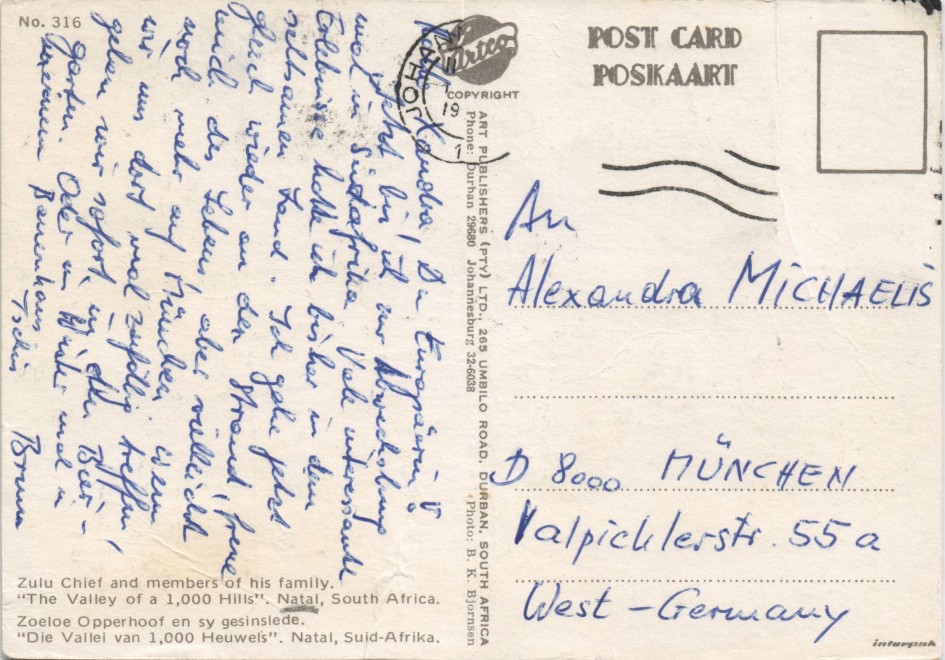 No. 316
Artco
COPYRIGHT
POST CARD
POSKAART
JOHA
19
1
Xandra, Du Europäerin!
Jetzt bin ich zur Abwechslung
mal in Südafrika. Viele interessante
Erlebnisse hatte ich bisher in dem
seltsamen Land. Ich gehe jetzt
gleich wieder an den Strand, freue
mich des Lebens, aber vielleicht
noch mehr auf München, wenn
wir uns dort mal zufällig treffen,
gehen wir sofort in den Bier-
garten. Oder im Winter mal in
unserem Bauernhaus
Tschüs Bruno
ART PUBLISHERS (PTY) LTD., 265 UMBILO ROAD, DURBAN, SOUTH AFRICA
Phone: Durban 29680 Johannesburg 32-6038 Photo: B. K. Bjornsen
An
Alexandra MICHAELIS
D 8000 MÜNCHEN
Valpichlerstr. 55a
West-Germany
Zulu Chief and members of his family.
"The Valley of a 1,000 Hills". Natal, South Africa.
Zoeloe Opperhoof en sy gesinslede.
"Die Vallei van 1,000 Heuwels". Natal, Suid-Afrika.
interpak